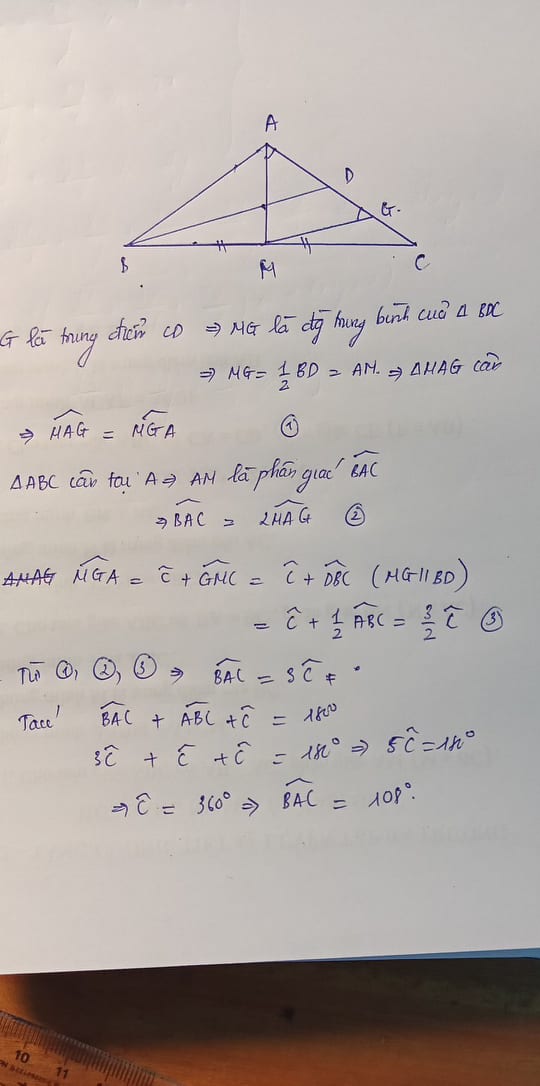 A
D
G.
B
M
C
G là trung điểm CD ⇒ MG là đg trung bình của Δ BDC
⇒ MG = 1/2 BD = AM. ⇒ ΔMAG cân
⇒ \widehat{MAG} = \widehat{MGA} ①
ΔABC cân tại A ⇒ AM là phân giác \widehat{BAC}
⇒ \widehat{BAC} = 2\widehat{MAG} ②
\widehat{MGA} = \widehat{C} + \widehat{GMC} = \widehat{C} + \widehat{DBC} (MG // BD)
= \widehat{C} + 1/2 \widehat{ABC} = 3/2 \widehat{C} ③
Từ ①, ②, ③ ⇒ \widehat{BAC} = 3\widehat{C}
Ta có \widehat{BAC} + \widehat{ABC} + \widehat{C} = 180°
3\widehat{C} + \widehat{C} + \widehat{C} = 180° ⇒ 5\widehat{C} = 180°
⇒ \widehat{C} = 360° ⇒ \widehat{BAC} = 108°.
10
11